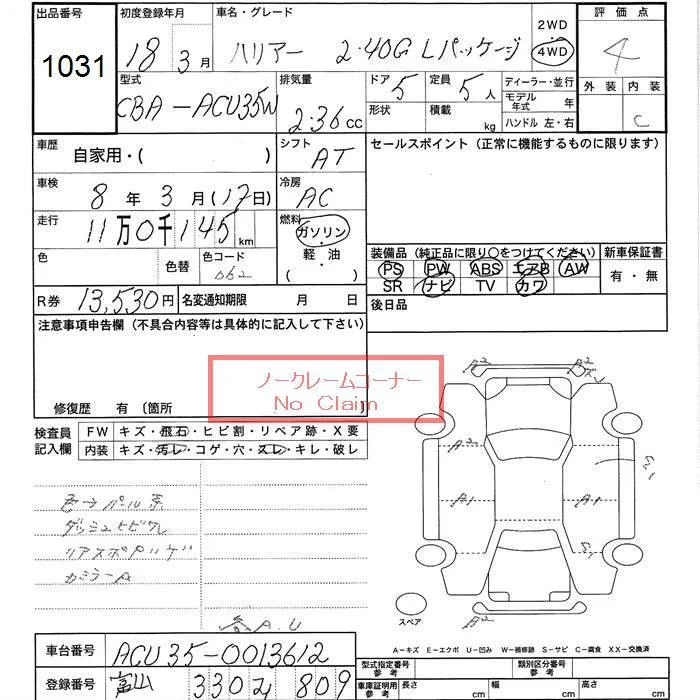 出品番号
1031
初度登録年月
18年3月
車名・グレード
ハリアー 2.40G Lパッケージ
2WD
4WD
評価点
4
外装 内装
C
型式
CBA-ACU35W
排気量
2.36cc
ドア
5
形状
定員
5人
積載
kg
ディーラー・並行
モデル年式 年
ハンドル 左・右
車歴
自家用・( )
シフト
AT
セールスポイント (正常に機能するものに限ります)
車検
8年3月(17日)
冷房
AC
走行
11万0千145km
燃料
ガソリン
軽・油
( )
色
色替
色コード
062
装備品 (純正品に限り〇をつけてください)
PS PW ABS エアB AW
SR ナビ TV カワ
新車保証書
有・無
R券 13,530円
名変通知期限 月 日
後日品
注意事項申告欄 (不具合内容等は具体的に記入して下さい)
ノークレームコーナー
No Claim
修復歴 有 〔箇所 〕
検査員記入欄
FW キズ・飛石・ヒビ割・リペア跡・X要
内装 キズ・汚レ・コゲ・穴・スレ・キレ・破レ
色→パール系
ダッシュヒビワレ
カミラーA
A2
A2
A2
A1
A1
S1
スペア
A・U
A-キズ E-エクボ U-凹み W-補修跡 S-サビ C-腐食 XX-交換済
車台番号 ACU35-0013612
登録番号 富山 330 809
型式指定番号 参考
類別区分番号 参考
車庫証明用 参考
長さ cm
幅 cm
高さ cm